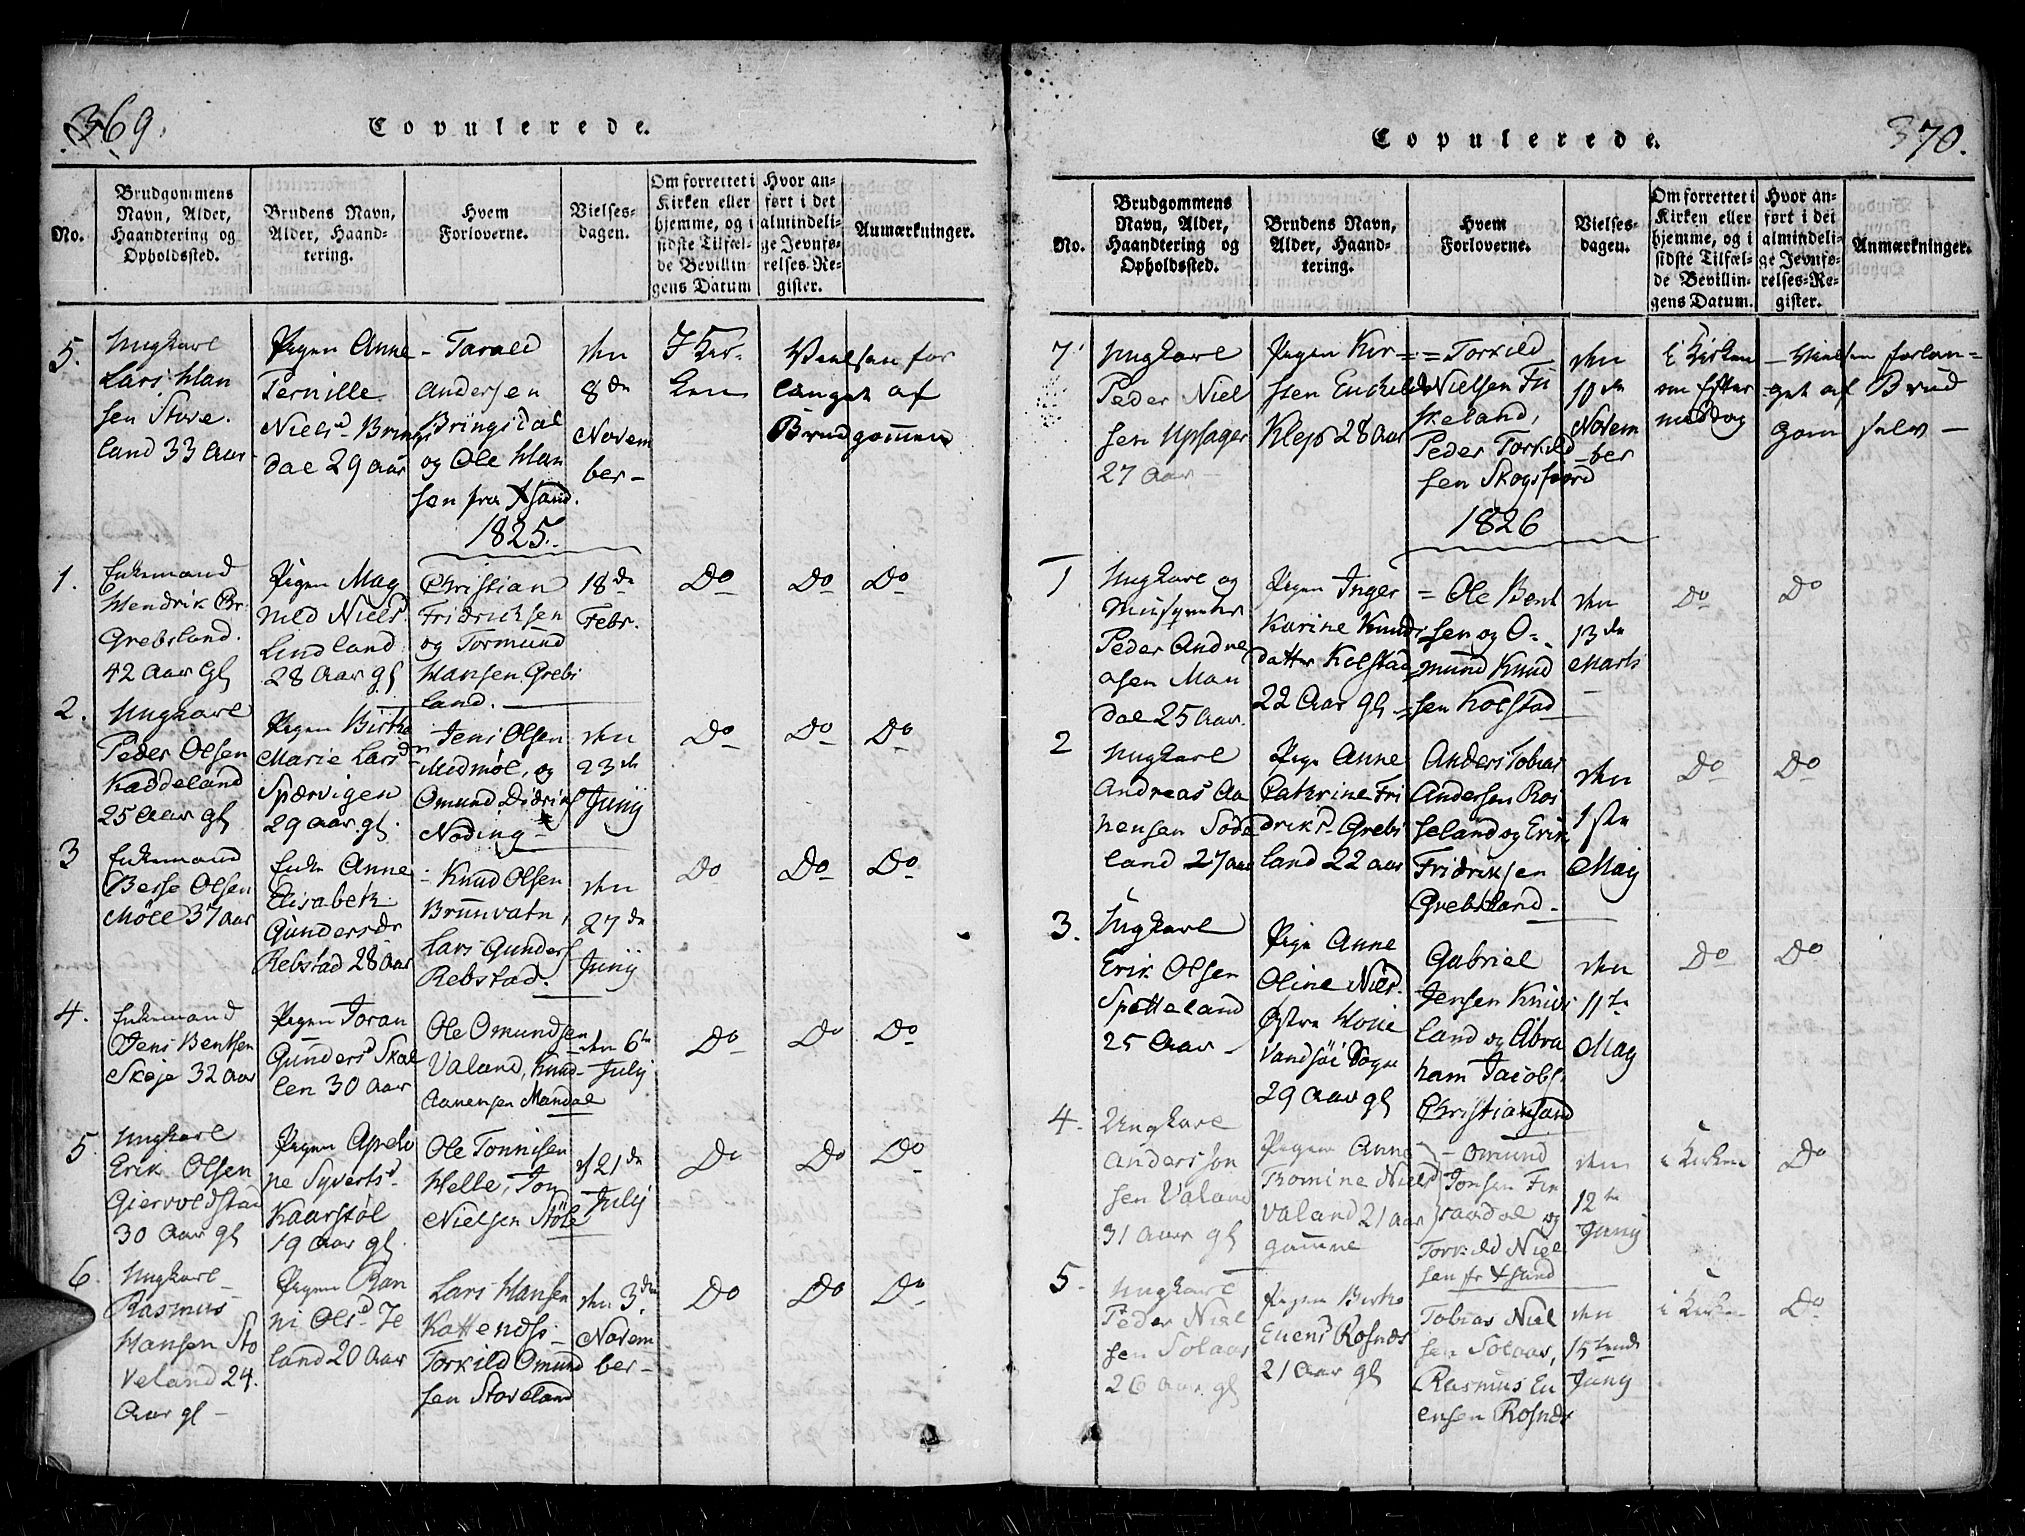 369.
Copulerede.
No.
Brudgommens
Navn, Alder,
Haandtering og
Opholdssted.
Brudens Navn,
Alder, Haand-
tering.
Hvem
Forloverne.
Vielses-
dagen.
Om forrettet i
Kirken eller
hjemme, og i
sidste Tilfæl-
de Bevillin-
gens Datum
Hvor an-
ført i det
almindeli-
ge Jevnfø-
relses-Re-
gister.
Anmærkninger.
5.
Ungkarl
Lars Han
sen Stove.
land 33 Aar
Pigen Anne
Pernille
Nielsd. Brings
dal 29 aar
- Tarald
Andersen
Bringsdal
og Ole Han
sen fra Xsand.
den
8de
Novem
ber -
I Kir-
ken
Vielsen for
langet af
Brudgommen
1825.
1.
Enkemand
Hendrik Gr.
Grebsland.
42 Aar gl
Pigen Mag
nild Nielsd
Lindland
28 Aar gl
Christian
Fridrichsen
og Tormund
Hansen Grebs
land.
18de
Febr.
Do
Do
Do
2.
Ungkarl
Peder Olsen
Kaddeland
25 Aar gl
Pigen Birthe
Marie Larsd
Spærvigen
29 aar gl.
Jens Olsen
Midmøl, og
Omund Didriks
Noding
den
23de
Junij
Do
Do
Do
3
Enkemand
Berse Olsen
Möll 37 aar
Enke Anne
Elisabeth
Gundersdr
Rebstad 28 Aar
- Knud Olsen
Brunvatn,
Lars Gunders
Rebstad.
den
27de
Junij
Do
Do
Do
4.
Enkemand
Jens Bentsen
Skeje 32 Aar
Pigen Joran
Gundersd Skal
len 30 aar
Ole Omundsen
Valand, Knud
Aanensen Mandal
den 6te
Julij
Do
Do
Do
5.
Ungkarl
Erik Olsen
Giervoldstad
30 Aar gl
Pigen Apelo
ne Syvertsd
Kaarstøl
19 aar gl.
Ole Tønnisen
Helle, Jon
Nielsen Støle
d 21de
Julij
Do
Do
Do
6.
Ungkarl
Rasmus
Hansen Sto
veland 24.
Aar gl -
Pigen Ran
ni Olsd Je
land 20 Aar
Lars Hansen
Kattends
Torkild Omund
sen Stoveland
den 3die
Novem
ber -
Do
Do
Do
370.
Copulerede.
No.
Brudgommens
Navn, Alder,
Haandtering og
Opholdssted.
Brudens Navn,
Alder, Haand-
tering.
Hvem
Forloverne.
Vielses-
dagen.
Om forrettet i
Kirken eller
hjemme, og i
sidste Tilfæl-
de Bevillin-
gens Datum.
Hvor an-
ført i det
almindeli-
ge Jevnfø-
relses-Re-
gister.
Anmærkninger.
7
Ungkarl
Peder Niel
sen Upsager
27 Aar -
Pigen Kir-
sten Enkelds
Klep 28 Aar
= Torkild
Nielsen Fu
skeland,
Peder Torkild
sen Skogsfiord
den
10de
Novem
-ber
i Kirken
om Efter
middag
- Vielsen forlan-
get af Brud
gom selv -
1826
1
Ungkarl og
Peder Andre
asen Man
dal 25 Aar.
Pigen Inger
Karine Knuds
datter Kolstad
22 Aar gl
= Ole Bent
sen og O-
mund Knud
sen Kolstad
den
13de
Marts
Do
Do
2
Ungkarl
Andreas Aa
nensen Søde
land 27 aar
Pige Anne
Cathrine Fri
driksd Grebs
land 22 aar
Anders Tobias
Andersen Ros
seland og Erik
Fridriksen
Grebsland.
den
1ste
Maij
Do
Do
3.
Ungkarl
Erik Olsen
Spetteland
25 Aar -
Pige Anne
Oline Nielsd.
Østre Høie
Vandsøe Sogn
29 Aar gl
Gabriel
Jensen Knibs
land og Abra
ham Jacobs.
Christiansand
den
11te
Maij
Do
Do
4.
Ungkarl
Anders Jon
sen Valand
31 Aar gl
Pigen Anne
Tomine Nielsd
Valand 21 Aar
gamme
- Omund
Jonsen Fin
saadal og
Torkild Niel
sen fr Xsand
den
12te
Junij
i Kirken
Do
5.
Ungkarl
Peder Niel
sen Solaas
26 Aar gl
Pigen Birthe
Euensd Rosnæs
21 Aar gl
Tobias Niel
sen Solaas,
Rasmus Eu
ensen Rosnæs
den
15tende
Junij
i Kirken
Do